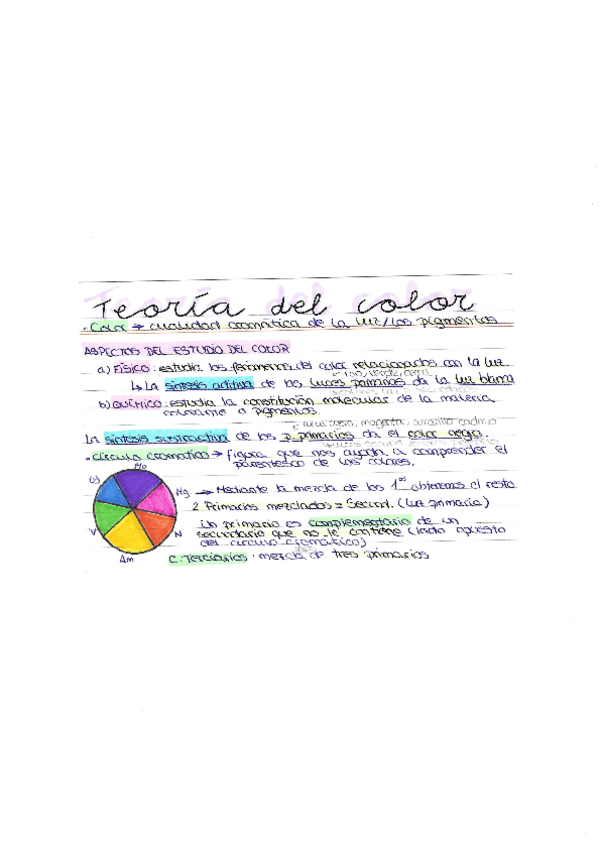 Teoría del color
· Color → cualidad cromática de la luz/los pigmentos
ASPECTOS DEL ESTUDIO DEL COLOR
a) FÍSICO: estudia los fenómenos del color relacionados con la luz
→ rojo, verde, azul
↳ La síntesis aditiva de los luces primarias da la luz blanca
b) QUÍMICO: estudia la constitución molecular de la materia
colorante o pigmentos.
azul cian, magenta, amarillo cadmio
La síntesis sustractiva de los p. primarios da el color negro.
· Círculo cromático → figura que nos ayuda a comprender el
parentesco de los colores.
Mo
Mg → Mediante la mezcla de los 1os obtenemos el resto
2 Primarios mezclados = Secund. (luz primaria)
Un primario es complementario de un
V N secundario que no le contiene (lado opuesto
del círculo cromático)
Am C. Terciarios: mezcla de tres primarios